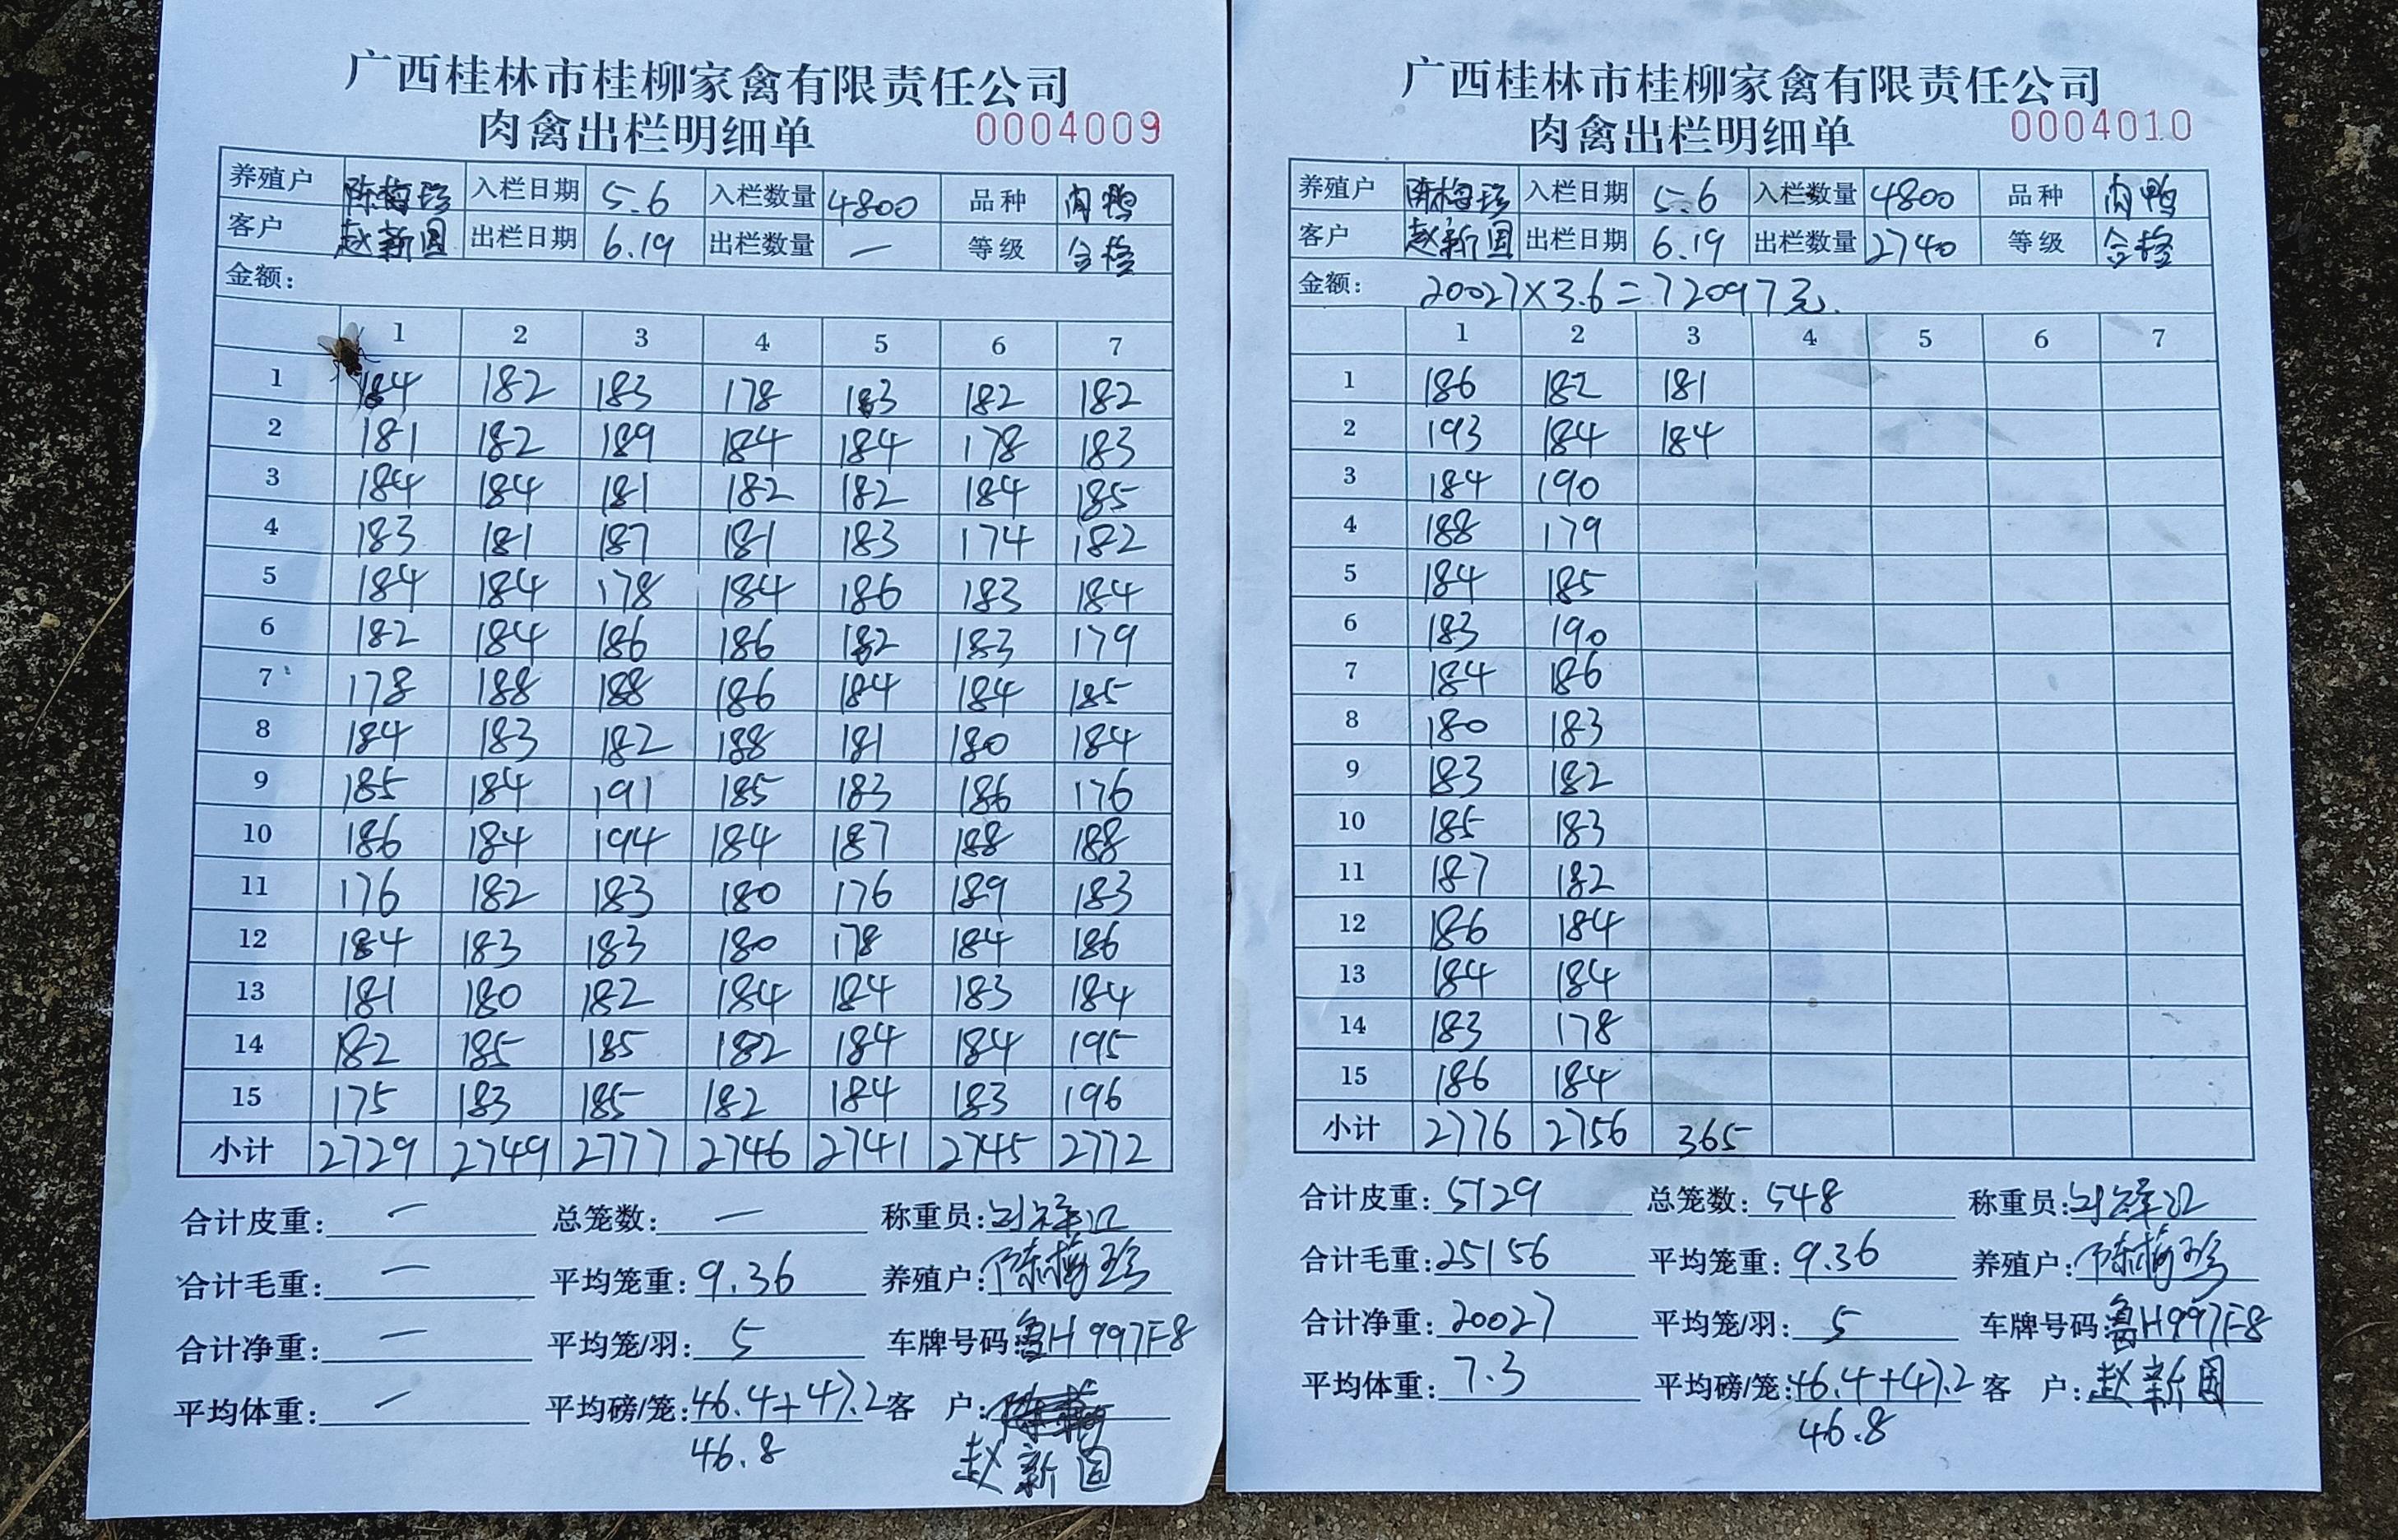 广西桂林市桂柳家禽有限责任公司
肉禽出栏明细单 0004009
养殖户 陈梅珍 入栏日期 5.6 入栏数量 4800 品种 肉鸭
客户 赵新国 出栏日期 6.19 出栏数量 — 等级 合格
金额:
1 2 3 4 5 6 7
1 184 182 183 178 183 182 182
2 181 182 189 184 184 178 183
3 184 184 181 182 182 184 185
4 183 181 187 181 183 174 182
5 184 184 178 184 186 183 184
6 182 184 186 186 182 183 179
7 178 188 188 186 184 184 185
8 184 183 182 188 181 180 184
9 185 184 191 185 183 186 176
10 186 184 194 184 187 188 188
11 176 182 183 180 176 189 183
12 184 183 183 180 178 184 186
13 181 180 182 184 184 183 184
14 182 185 185 182 184 184 195
15 175 183 185 182 184 183 196
小计 2729 2749 2777 2746 2741 2745 2772
合计皮重: — 总笼数: — 称重员:
合计毛重: — 平均笼重: 9.36 养殖户: 陈梅珍
合计净重: — 平均笼/羽: 5 车牌号码: 鲁H997F8
平均体重: — 平均磅/笼: 46.4+47.2 客 户:
46.8 赵新国
广西桂林市桂柳家禽有限责任公司
肉禽出栏明细单 0004010
养殖户 陈梅珍 入栏日期 5.6 入栏数量 4800 品种 肉鸭
客户 赵新国 出栏日期 6.19 出栏数量 2740 等级 合格
金额: 20027×3.6=72097元.
1 2 3 4 5 6 7
1 186 182 181
2 193 184 184
3 184 190
4 188 179
5 184 185
6 183 190
7 184 186
8 180 183
9 183 182
10 185 183
11 187 182
12 186 184
13 184 184
14 183 178
15 186 184
小计 2776 2756 365
合计皮重: 5129 总笼数: 548 称重员:
合计毛重: 25156 平均笼重: 9.36 养殖户: 陈梅珍
合计净重: 20027 平均笼/羽: 5 车牌号码: 鲁H997F8
平均体重: 7.3 平均磅/笼: 46.4+47.2 客 户: 赵新国
46.8